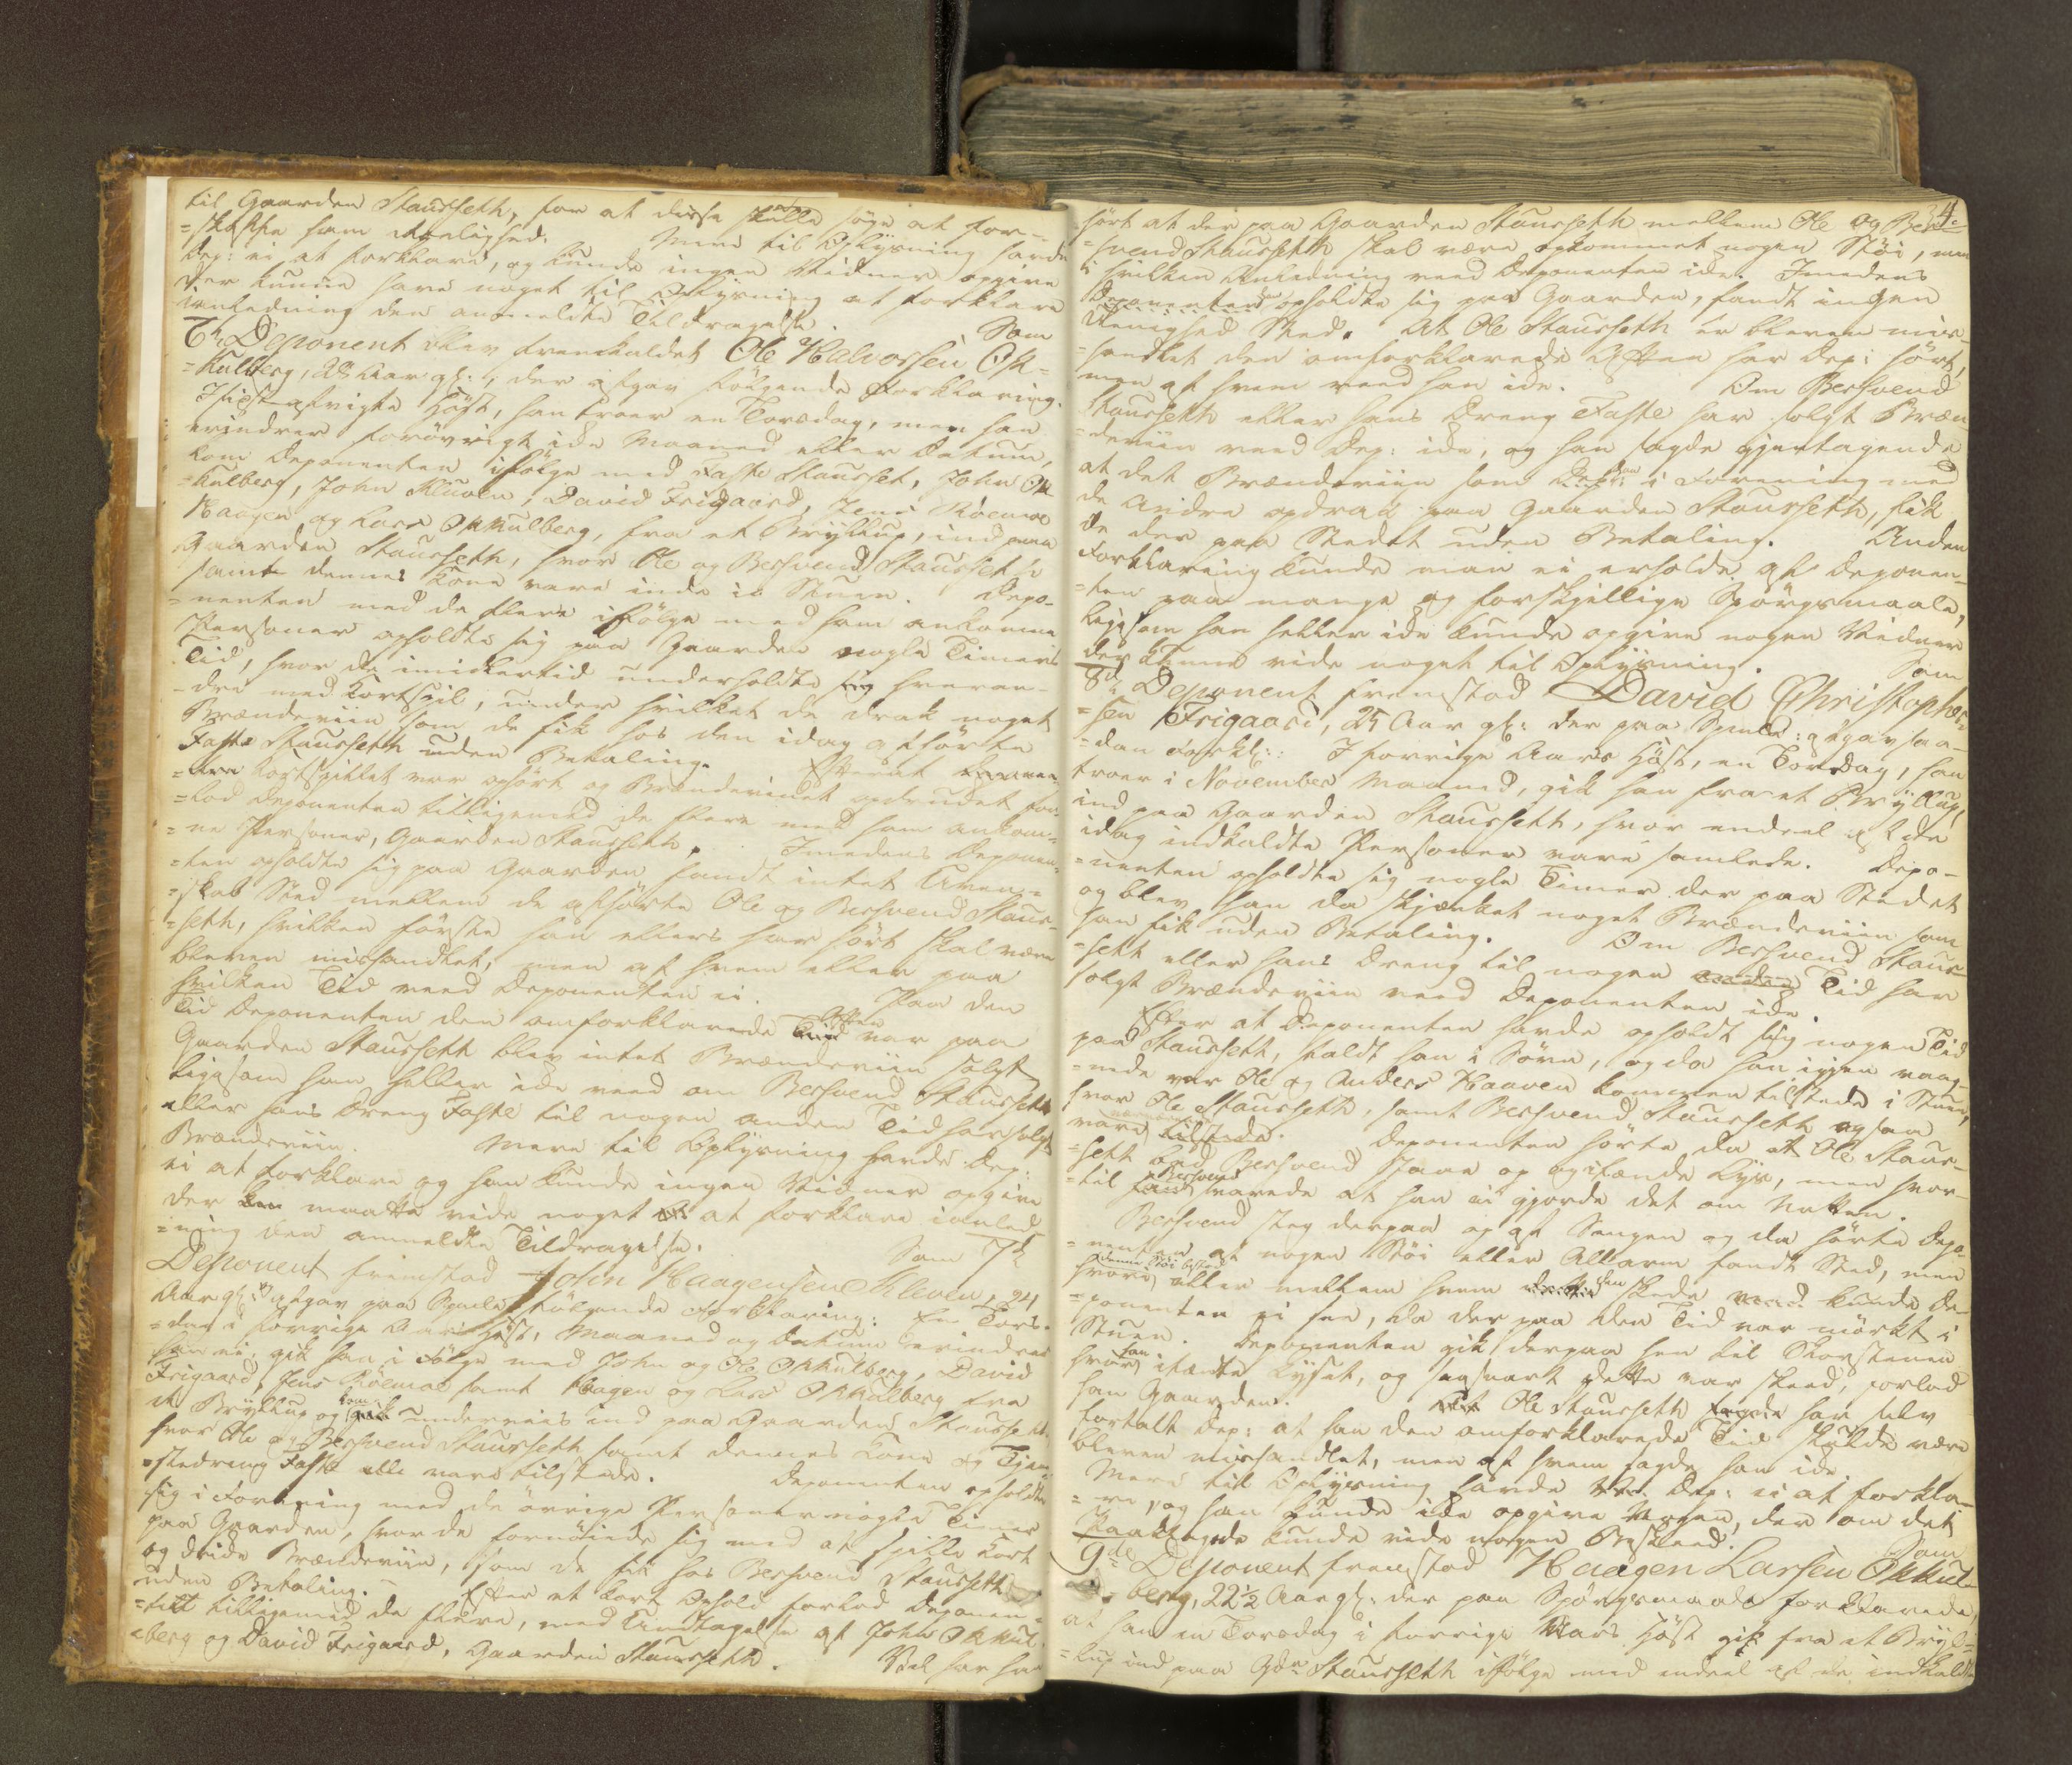 til Gaarden Staurseth, som at disse skulde søge at for-
=skaffe ham Leilighed. Mere til Oplysning havde
Dep: ei at forklare, og kunde ingen Vidner opgive
der kunne have noget til Oplysning at forklare
ianledning den anmeldte Tildragelse. Som
6te Deponent blev fremkaldet Ole Halvorsen Ok=
=kulberg, 28 Aar gl:, der afgav følgende Forklaring.
I sidst afvigte Høst, han troer en Torsdag, men han
erindrer forøvrigt ikke Maaned eller Datum,
kom Deponenten ifølge med Faste Staurset, John Ok
=kulberg, John Kluven, David Frigaard, Jens Röemoe
Haagen og Lars Okkulberg, fra et Bryllup, ind paa
Gaarden Staurseth, hvor Ole og Bersvend Staurseth
samt dennes Kone vare inde i Stuen. Depo-
=nenten med de flere ifølge med ham ankomne
Personer opholdte sig paa Gaarden nogle Timers
Tid, hvor de imidlertid underholdte sig hveran-
=dre med Kortspil, under hvilket de drak noget
Brændeviin som de fik hos den idag afhørte
Faste Staurseth uden Betaling. Efterat
Kortspillet var ophørt og Brændevinet opdrukket for-
=lod Deponenten tilligemed de flere med ham ankom-
=ne Personer, Gaarden Staurseth. Imedens Deponen-
=ten opholdte sig paa Gaarden fandt intet Uven-
=skab Sted mellem de afhørte Ole og Bersvend Staur-
=seth, hvilken første han ellers har hørt skal være
bleven mishandlet, men af hvem eller paa
hvilken Tid veed Deponenten ei. Paa den
Tid Deponenten den omforklarede Aften var paa
Gaarden Staurseth blev intet Brændeviin solgt
ligesom han heller ikke veed om Bersvend Staurseth
eller hans Dreng Faste til nogen anden Tid har solgt
Brændeviin. Mere til Oplysning havde Dep:
ei at forklare og han kunde ingen Vidner opgive
der maatte vide noget at forklare ianled
=ning den anmeldte Tildragelse. Som 7de
Deponent fremstod John Haagensen Kleven, 24
Aar gl: og afgav paa Spml: følgende Forklaring: En Tors-
=dag i forrige Aars Høst, Maaned og Datum erindrer
han ei, gik han i Følge med John og Ole Okkulberg, David
Frigaard, Jens Röemoe samt Haagen og Lars Okkulberg fra
et Bryllup og kom underveis ind paa Gaarden Staurseth
hvor Ole og Bersvend Staurseth samt dennes Kone og Tjene-
=stedreng Faste alle vare tilstede. Deponenten opholdte
sig i Forening med de øvrige Personer nogle Timer
paa Gaarden, hvor de fornøiede sig med at spille Kort
og drikke Brændeviin, som de fik hos Bersvend Staurseth
uden Betaling. Efter et kort Ophold forlod Deponen-
=ten tilligemed de flere, med Undtagelse af John Okkul-
=berg og David Frigaard, Gaarden Staurseth. Vel har han
34.
hørt at der paa Gaarden Staurseth mellem Ole og Ber-
=svend Staurseth skal være opkommet nogen Støi, men
i hvilken Anledning veed Deponenten ikke. Imedens
Deponenten opholdte sig paa Gaarden, fandt ingen
Uenighed Sted. At Ole Staurseth er bleven mis-
=handlet den omforklarede Aften har Dep: hørt,
men af hvem veed han ikke. Om Bersvend
Staurseth eller hans Dreng Faste har solgt Bræn-
=deviin veed Dep: ikke, og han sagde gjentagende
at det Brændeviin som han i Forening med
de Andre opdrak paa Gaarden Staurseth, fik
de der paa Stedet uden Betaling. Anden
Forklaring kunde man ei erholde af Deponen-
=ten paa mange og forskjellige Spørgsmaale,
ligesom han heller ikke kunde opgive nogen Vidner
der kunne vide noget til Oplysning. Som
8de Deponent fremstod David Christopher-
=sen Frigaard, 25 Aar gl: der paa Spml: afgav saa-
=dan Forkl:: I forrige Aars Høst, en Torsdag, han
troer i November Maaned, gik han fra et Bryllup,
ind paa Gaarden Staurseth, hvor endeel af de
idag indkaldte Personer vare samlede. Depo-
=nenten opholdte sig nogle Timer der paa Stedet
og blev han da skjænket noget Brændeviin som
han fik uden Betaling. Om Bersvend Staur-
=seth eller hans Dreng til nogen anden Tid har
solgt Brændeviin veed Deponenten ikke.
Efter at Deponenten havde opholdt sig nogen Tid
paa Staurseth, faldt han i Søvn, og da han igjen vaag-
=nede var Ole og Anders Haaven kommen tilstede i Stuen,
hvor Ole Staurseth, samt Bersvend Staurseth ogsaa
vare tilstede. Deponenten hørte da at Ole Staur-
=seth bad Bersvend staae op og tænde Lys, men hvor-
=til Bersvend svarede at han ei gjorde det om Natten.
Bersvend steg derpaa op af Sengen og da hørte Depo-
=nenten at nogen Støi eller Allarm fandt Sted, men
hvori denne Støi bestod eller mellem hvem den skede kunde De-
=ponenten ei see, da der paa den Tid var mørkt i
Stuen. Deponenten gik derpaa hen til Skorstenen
hvor han tændte Lyset, og saasnart dette var skeed, forlod
han Gaarden. Ole Staurseth har selv
fortalt Dep: at han den omforklarede Tid skulde være
bleven mishandlet, men af hvem sagde han ikke.
Mere til Oplysning havde Dep: ei at forkla-
=re, og han kunde ikke opgive Nogen, der om det
Paaklagede kunde vide nogen Beskeed. Som
9de Deponent fremstod Haagen Larsen Okkul-
=berg, 22½ Aar gl: der paa Spørgsmaal forklarede,
at han en Torsdag i forrige Aars Høst gik fra et Bryl-
=lup ind paa Gdn Staurseth ifølge med endeel af de indkaldte